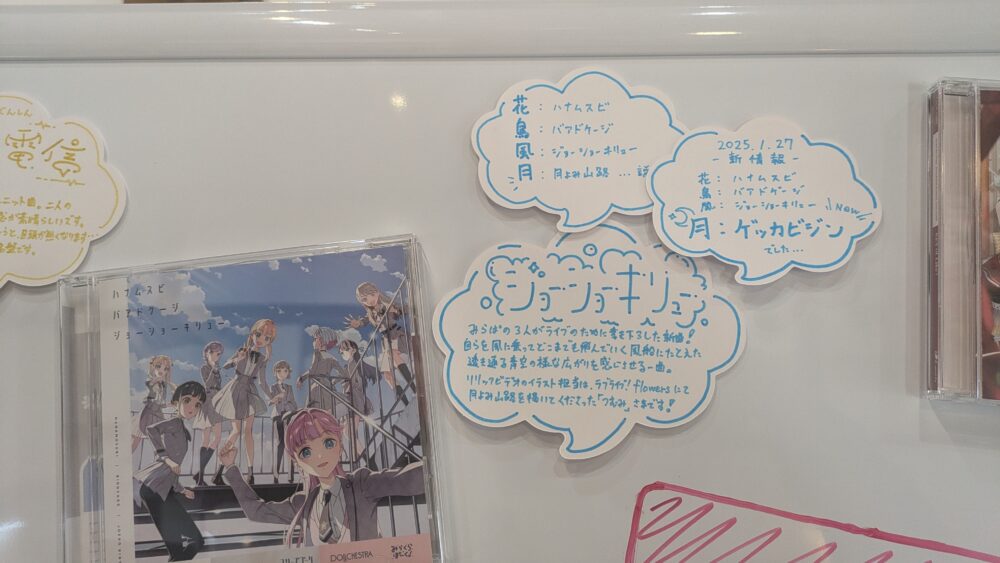 でんしん
電信
ニット曲。二人の
が素晴らしいです。
うと、目頭が熱くなります…
盤です。
花：ハナムスビ
鳥：バアドケージ
風：ジョーショーキリュー
月：月よみ山路 … 説
2025.1.27
-新情報-
花：ハナムスビ
鳥：バアドケージ
風：ジョーショーキリュー
New
月：ゲッカビジン
でした…
ジョーショーキリュー
みらぱの3人がライブのために書き下ろした新曲！
自らを風に乗ってどこまでも飛んでいく風船にたとえた
透き通る青空の様な広がりを感じさせる一曲。
リリックビデオのイラスト担当は、ラブライブ！flowersにて
月よみ山路を描いてくださった「つむみ」さまです！
ハナムスビ
バアドケージ
ジョーショーキリュー
HANAMUSUBI
スリーズブーケ
DOLLCHESTRA
みらくら
ぱーく！